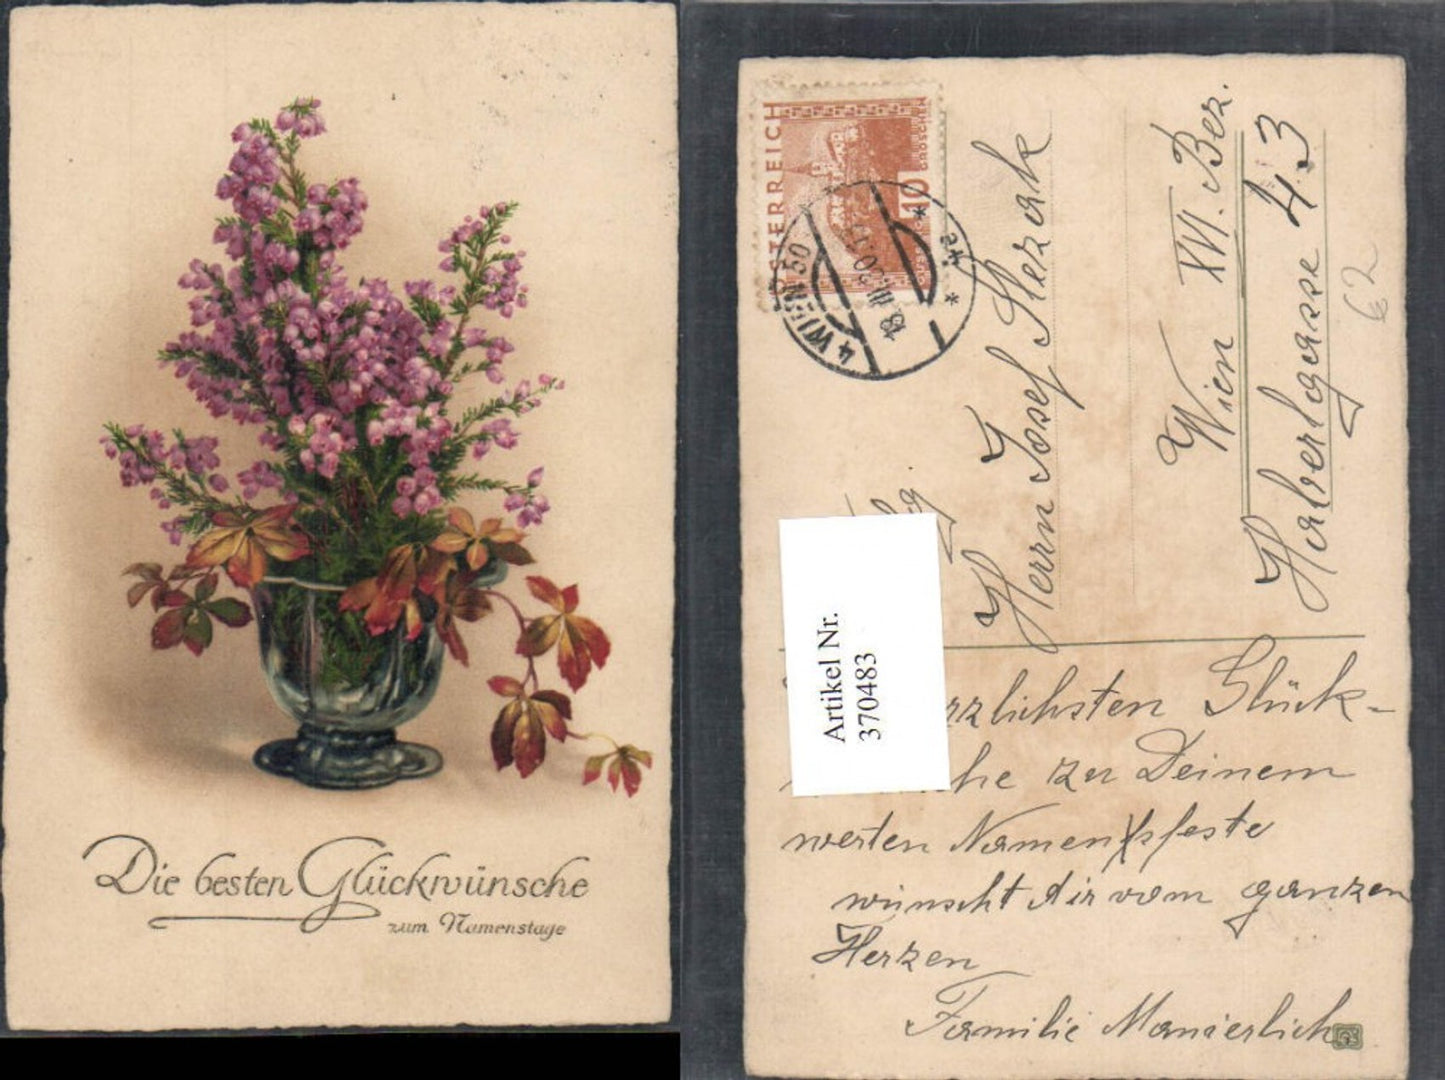 Die besten Glückwünsche
zum Namenstage
ÖSTERREICH
10
GROSCHEN
4 WIEN 50
18.III.
Herrn Josef Slezak
Wien XVI. Bez.
Haberlgasse 43
62
Artikel Nr.
370483
rzlichsten Glück-
che zu Deinem
werten Namensfeste
wünscht dir vom ganzen
Herzen
Familie Manierlich